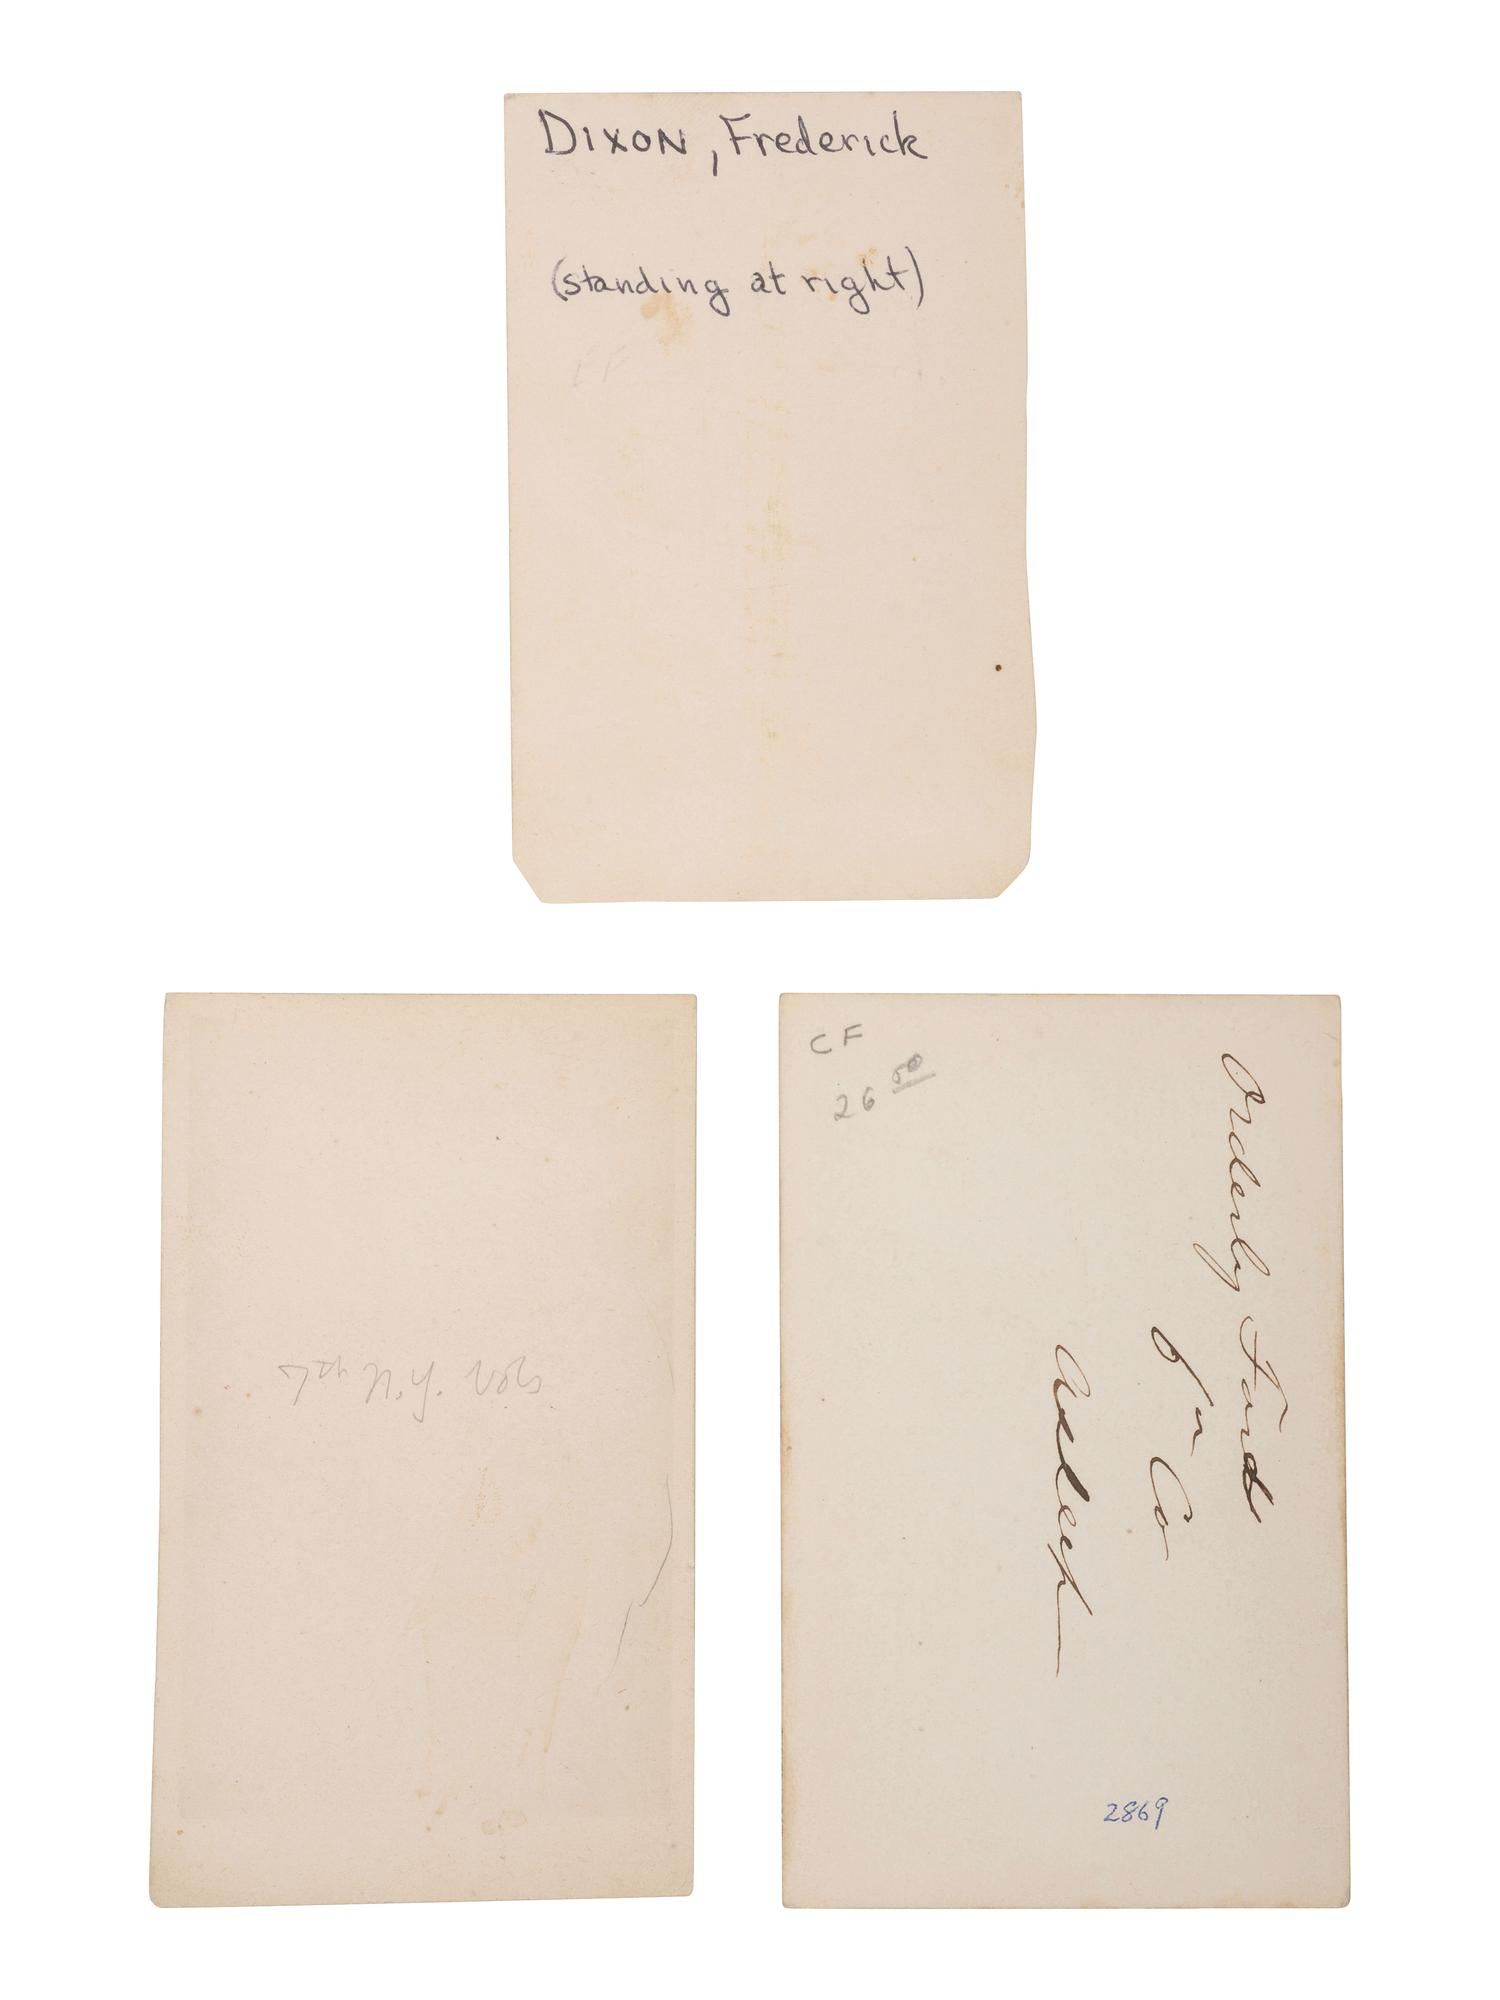 DIXON, Frederick
(standing at right)
7th N.Y. Vols
CF
26 50
Orderly Ford
6th Co
Asleep
2869